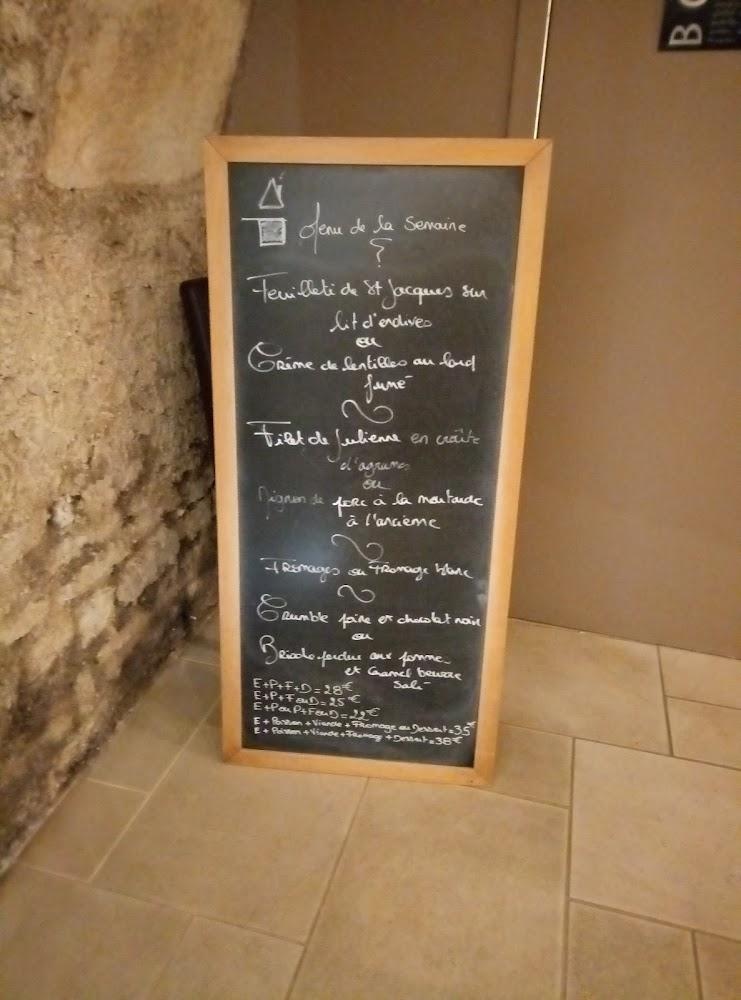 Menu de la Semaine
Feuilleté de St Jacques sur
lit d'endives
ou
Crème de lentilles au lard
fumé
Filet de Julienne en croûte
d'agrumes
ou
Mignon de porc à la moutarde
à l'ancienne
Fromages ou Fromage blanc
Crumble poire et chocolat noir
ou
Brioche perdue aux pommes
et Caramel beurre
salé
E+P+F+D = 28€
E+P+F ou D = 25€
E+P ou P+F ou D = 22€
E + Poisson + Viande + Fromage ou Dessert = 35€
E + Poisson + Viande + Fromage + Dessert = 38€
B